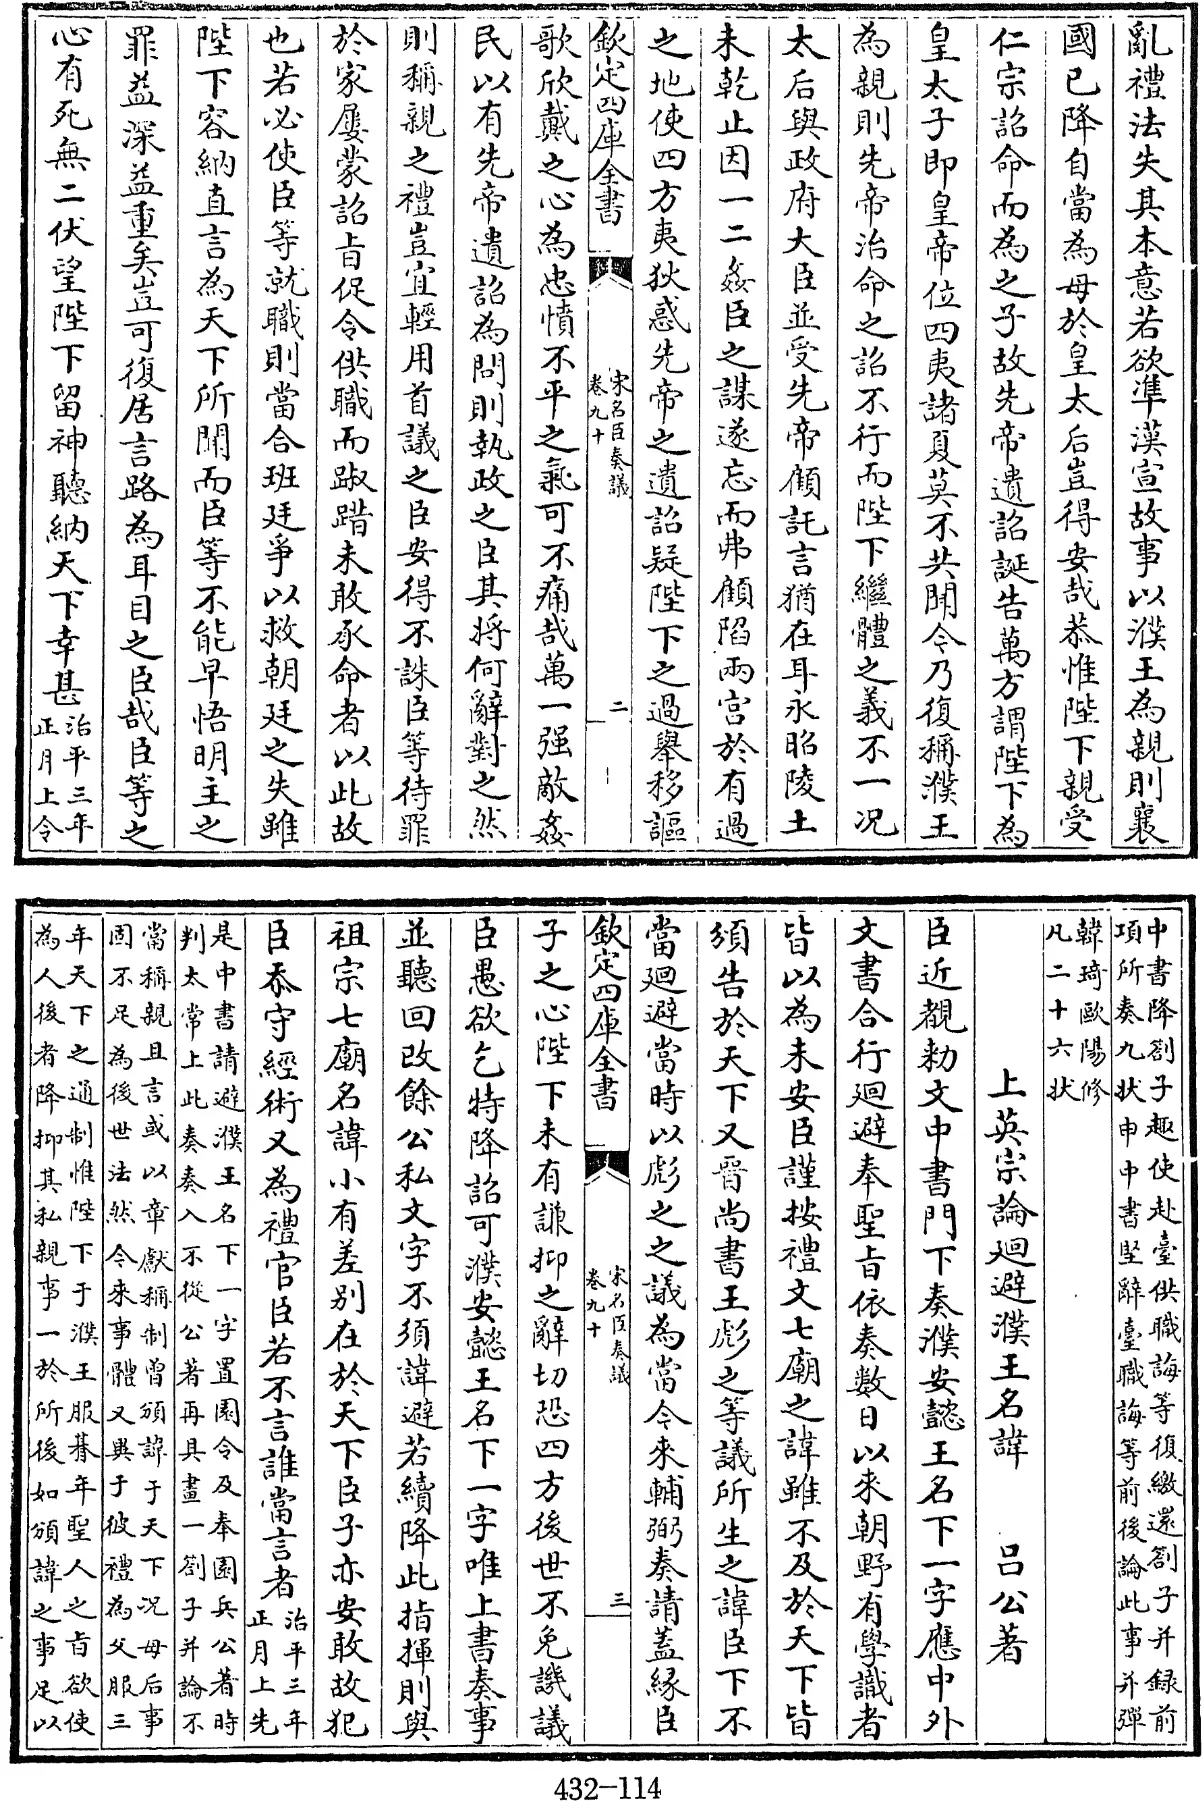 亂禮法失其本意若欲準漢宣故事以濮王為親則襄
國已降自當為母於皇太后豈得安哉恭惟陛下親受
仁宗詔命而為之子故先帝遺詔誕告萬方謂陛下為
皇太子即皇帝位四夷諸夏莫不共聞今乃復稱濮王
為親則先帝治命之詔不行而陛下繼體之義不一况
太后與政府大臣並受先帝顧託言猶在耳永昭陵土
未乾止因一二姦臣之謀遂忘而弗顧陷兩宫於有過
之地使四方夷狄惑先帝之遺詔疑陛下之過舉移謳
欽定四庫全書
宋名臣奏議
卷九十
二
歌欣戴之心為忠憤不平之氣可不痛哉萬一强敵姦
民以有先帝遺詔為問則執政之臣其將何辭對之然
則稱親之禮豈宜輕用首議之臣安得不誅臣等待罪
於家屢蒙詔旨促令供職而踧踖未敢承命者以此故
也若必使臣等就職則當合班廷爭以救朝廷之失雖
陛下容納直言為天下所聞而臣等不能早悟明主之
罪益深益重矣豈可復居言路為耳目之臣哉臣等之
心有死無二伏望陛下留神聽納天下幸甚
治平三年
正月上令
中書降劄子趣使赴臺供職誨等復繳還劄子并録前
項所奏九状申中書堅辭臺職誨等前後論此事并彈
韓琦歐陽修
凡二十六状
上英宗論廻避濮王名諱 吕公著
臣近覩勅文中書門下奏濮安懿王名下一字應中外
文書合行廻避奉聖旨依奏數日以来朝野有學識者
皆以為未安臣謹按禮文七廟之諱雖不及於天下皆
須告於天下又晉尚書王彪之等議所生之諱臣下不
當廻避當時以彪之之議為當今來輔弼奏請蓋緣臣
欽定四庫全書
宋名臣奏議
卷九十
三
子之心陛下未有謙抑之辭切恐四方後世不免譏議
臣愚欲乞特降詔可濮安懿王名下一字唯上書奏事
並聽回改餘公私文字不須諱避若續降此指揮則與
祖宗七廟名諱小有差别在於天下臣子亦安敢故犯
臣忝守經術又為禮官臣若不言誰當言者
治平三年
正月上先
是中書請避濮王名下一字置園令及奉園兵公著時
判太常上此奏奏入不從公著再具畫一劄子并論不
當稱親且言或以章獻稱制曾頒諱于天下况母后事
固不足為後世法然今來事體又異于彼禮為父服三
年天下之通制惟陛下于濮王服朞年聖人之旨欲使
為人後者降抑其私親事一於所後如頒諱之事足以
432-114